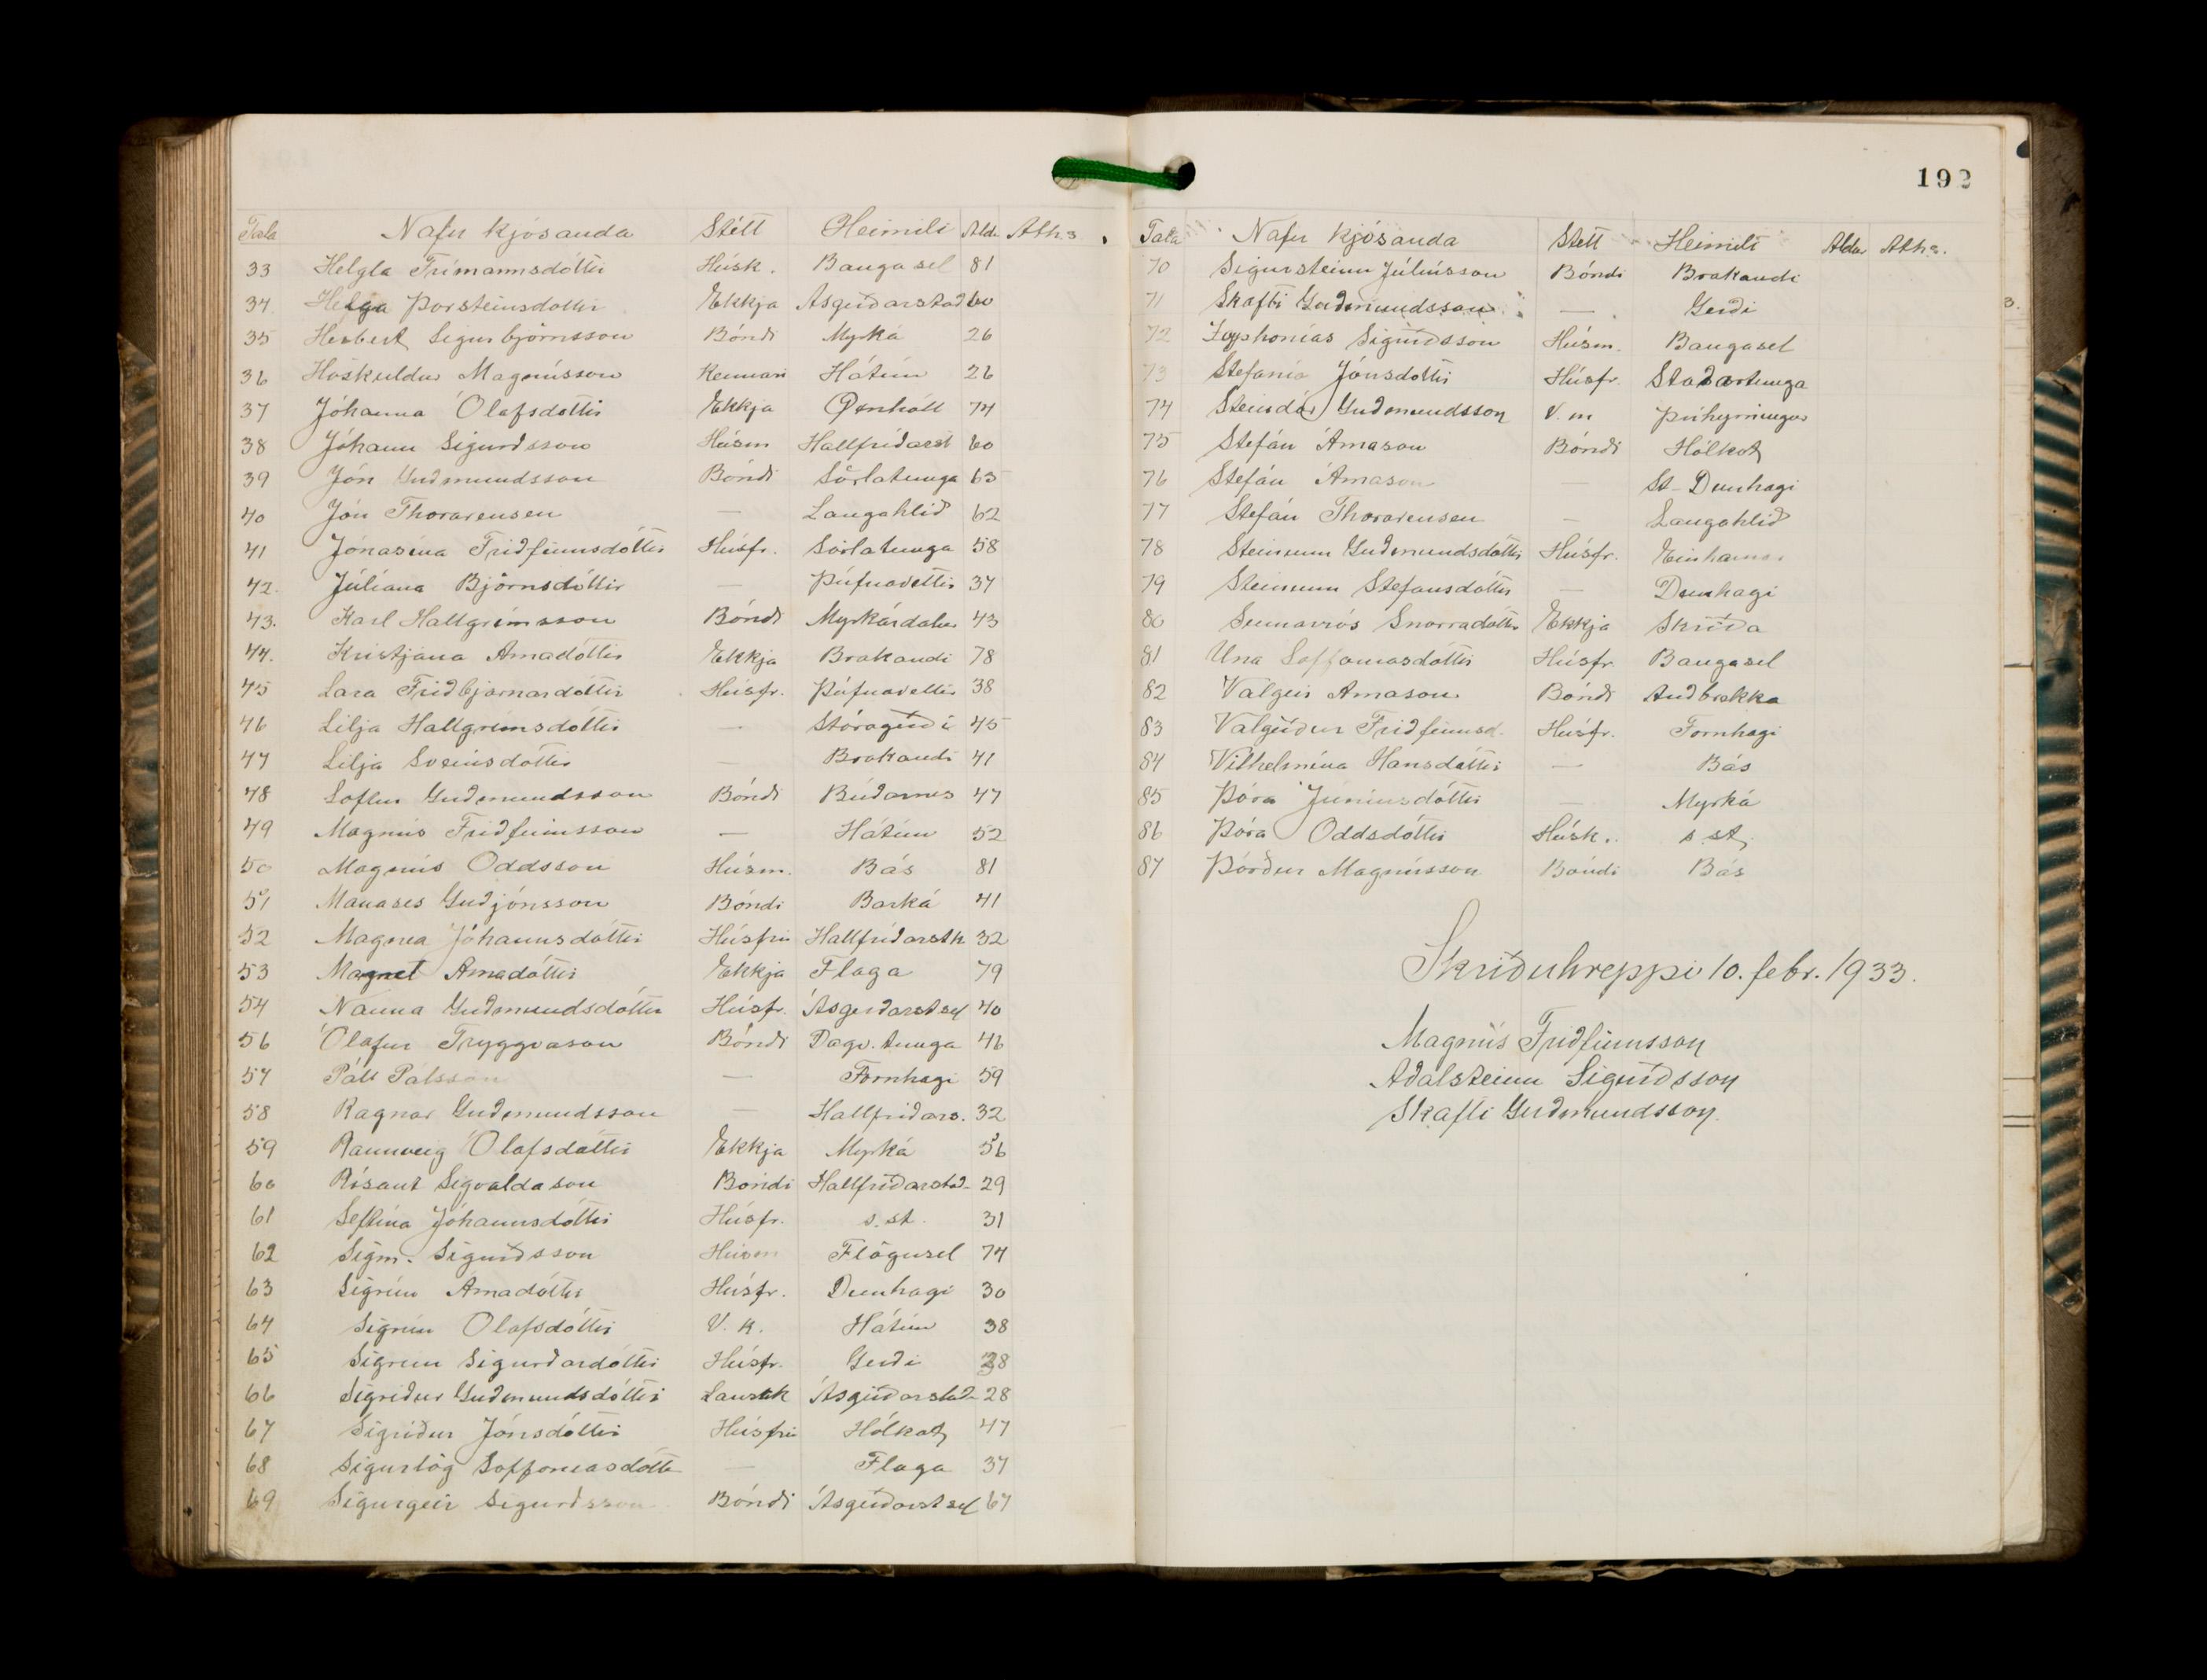 Tala Nafn kjósanda Stétt Heimili Aldr Aths
33 Helgla Frímannsdóttir Húsk. Baugasel 81
34 Helga Þorsteinsdóttir Ekkja Ásgerðarstað 60
35 Herbert Sigurbjörnsson Bóndi Myrká 26
36 Höskuldur Magnússon Kennari Hátún 26
37 Jóhanna Ólafsdóttir Ekkja Öxnhóll 74
38 Jóhann Sigurðsson Húsm Hallfríðarst 60
39 Jón Guðmundsson Bóndi Sörlatunga 65
40 Jón Thorarensen — Langahlíð 62
41 Jónasína Friðfinnsdóttir Húsfr. Sörlatunga 58
42. Júlíana Björnsdóttir — Þúfnavellir 37
43. Karl Hallgrímsson Bóndi Myrkárdalur 43
44. Kristjana Árnadóttir Ekkja Brakandi 78
45 Lára Friðbjarnardóttir Húsfr. Þúfnavellir 38
46 Lilja Hallgrímsdóttir — Stóragerði 45
47 Lilja Sveinsdóttir — Brakandi 41
48 Loftur Guðmundsson Bóndi Búðarnes 47
49 Magnús Friðfinnsson — Hátún 52
50 Magnús Oddsson Húsm. Bás 81
51 Manases Guðjónsson Bóndi Barká 41
52 Magnea Jóhannsdóttir Húsfrú Hallfríðarstk 32
53 Magnet Árnadóttir Ekkja Flaga 79
54 Nanna Guðmundsdóttir Húsfr. Ásgerðarstsel 40
56 Ólafur Tryggvason Bóndi Dagv. tunga 46
57 Páll Pálsson — Fornhagi 59
58 Ragnar Guðmundsson — Hallfríðars. 32
59 Rannveig Ólafsdóttir Ekkja Myrká 56
60 Rósant Sigvaldason Bóndi Hallfríðarstað- 29
61 Seflína Jóhannsdóttir Húsfr. s.st. 31
62 Sigm. Sigurðsson Húsm Flögusel 74
63 Sigrún Árnadóttir Húsfr. Dunhagi 30
64 Sigrún Ólafsdóttir V.k. Hátún 38
65 Sigrún Sigurðardóttir Húsfr. Gerði 38
66 Sigríður Guðmundsdóttir Lausak Ásgerðarstað- 28
67 Sigríður Jónsdóttir Húsfrú Hólkot 47
68 Sigurlög Soffoníasdótti — Flaga 37
69 Sigurgeir Sigurðsson Bóndi Ásgerðarstsel 67
192
Tala Nafn kjósanda Stétt Heimili Aldur Aths.
70 Sigursteinn Júlíusson Bóndi Brakandi
71 Skafti Guðmundsson — Gerði
72 Zophonías Sigurðsson Húsm. Baugasel
73 Stefanía Jónsdóttir Húsfr. Staðartunga
74 Steindór Guðmundsson V.m Þríhyrningur
75 Stefán Árnason Bóndi Hólkot
76 Stefán Árnason — St-Dunhagi
77 Stefán Thorarensen — Langahlíð
78 Steinunn Guðmundsdóttir Húsfr. Einhamar
79 Steinunn Stefánsdóttir — Dunhagi
80 Sunnavrós Snorradóttir Ekkja Skriða
81 Una Soffoníasdóttir Húsfr Baugasel
82 Valgeir Árnason Bóndi Auðbrekka
83 Valgerður Friðfinnsd. Húsfr. Fornhagi
84 Vilhelmína Hansdóttir — Bás
85 Þóra Júníusdóttir — Myrká
86 Þóra Oddsdóttir Húsk.. s.st.
87 Þórður Magnússon Bóndi Bás
Skriðuhreppi 10. febr. 1933.
Magnús Friðfinnsson
Aðalsteinn Sigurðsson
Skafti Guðmundsson.